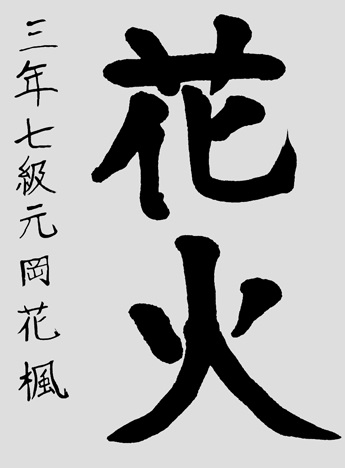 花火
三年七級元岡花楓